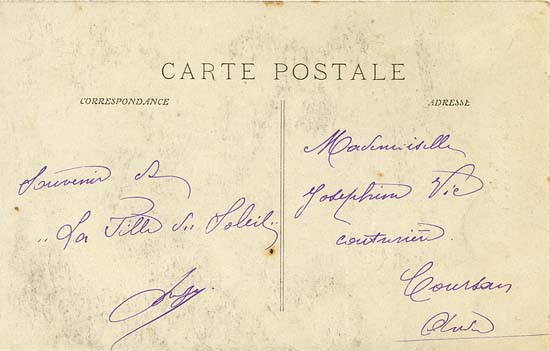 CARTE POSTALE
CORRESPONDANCE
ADRESSE
Souvenir de
"La Fille du Soleil"
Mademoiselle
Josephine Vic
couturière
Coursan
Aude